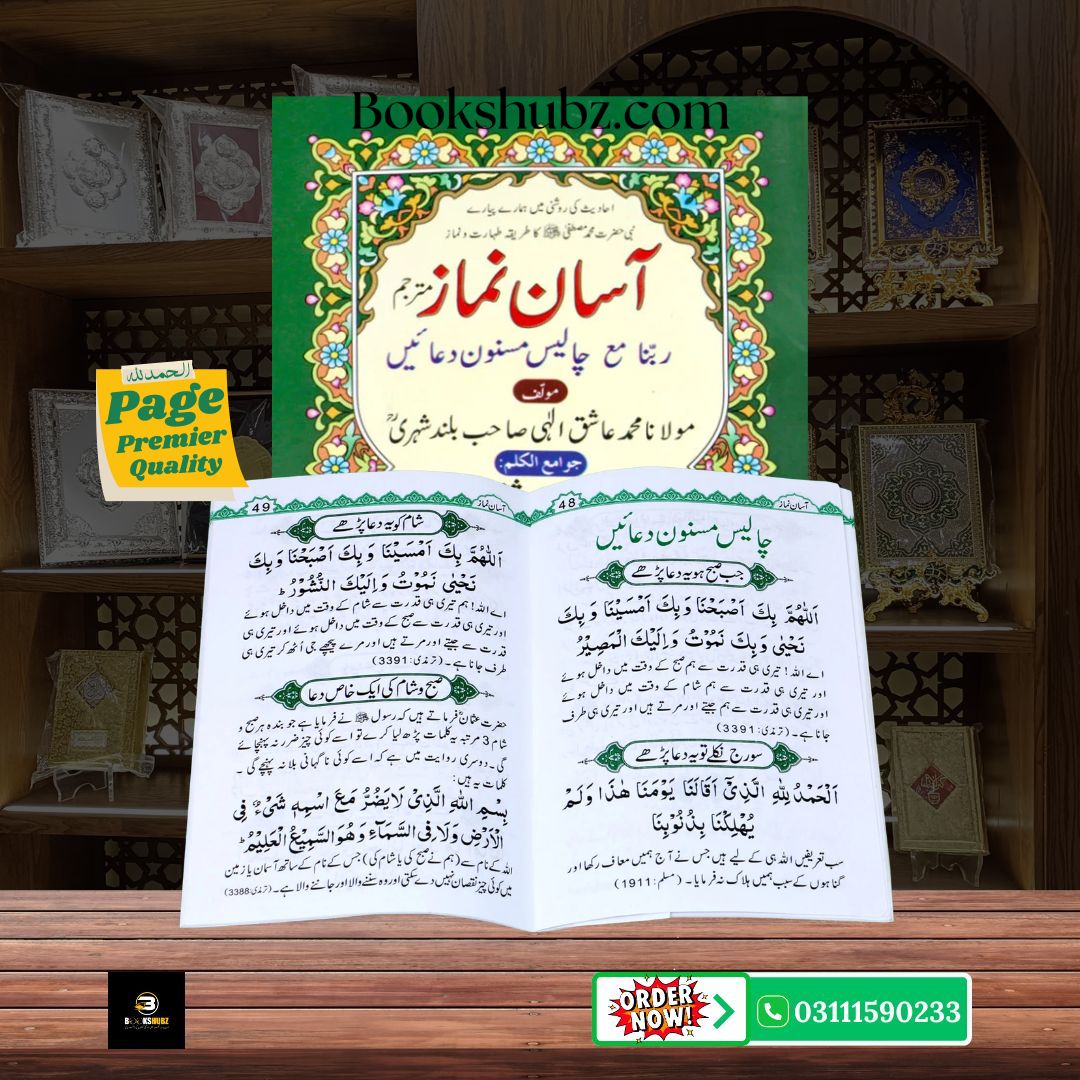 Bookshubz.com
احادیث کی روشنی میں ہمارے پیارے
نبی حضرت محمد مصطفیٰ ﷺ کا طریقہ طہارت و نماز
آسان نماز مترجم
ربّنا مع چالیس مسنون دعائیں
مولّف
مولانا محمد عاشق الٰہی صاحب بلند شہریؒ
جوامع الکلم:
الحمدلله
Page
Premier
Quality
48
آسان نماز
چالیس مسنون دعائیں
جب صبح ہو یہ دعا پڑھے
اَللّٰهُمَّ بِكَ اَصْبَحْنَا وَبِكَ اَمْسَيْنَا وَ بِكَ
نَحْيٰى وَ بِكَ نَمُوْتُ وَ اِلَيْكَ الْمَصِيْرُ
اے اللہ! تیری ہی قدرت سے ہم صبح کے وقت میں داخل ہوئے
اور تیری ہی قدرت سے ہم شام کے وقت میں داخل ہوئے
اور تیری ہی قدرت سے ہم جیتے اور مرتے ہیں اور تیری ہی طرف
جانا ہے۔ (ترمذی: 3391)
سورج نکلے تو یہ دعا پڑھے
اَلْحَمْدُ لِلّٰهِ الَّذِىْٓ اَقَالَنَا يَوْمَنَا هٰذَا وَلَمْ
يُهْلِكْنَا بِذُنُوْبِنَا
سب تعریفیں اللہ ہی کے لیے ہیں جس نے آج ہمیں معاف رکھا اور
گناہوں کے سبب ہمیں ہلاک نہ فرمایا۔ (مسلم: 1911)
49
آسان نماز
شام کو یہ دعا پڑھے
اَللّٰهُمَّ بِكَ اَمْسَيْنَا وَ بِكَ اَصْبَحْنَا وَبِكَ
نَحْيٰى نَمُوْتُ وَ اِلَيْكَ النُّشُوْرُ ط
اے اللہ! ہم تیری ہی قدرت سے شام کے وقت میں داخل ہوئے
اور تیری ہی قدرت سے صبح کے وقت میں داخل ہوئے اور تیری ہی
قدرت سے جیتے اور مرتے ہیں اور مرے پیچھے جی اُٹھ کر تیری ہی
طرف جانا ہے۔ (ترمذی: 3391)
صبح و شام کی ایک خاص دعا
حضرت عثمانؓ فرماتے ہیں کہ رسول ﷺ نے فرمایا ہے جو بندہ ہر صبح و
شام 3 مرتبہ یہ کلمات پڑھ لیا کرے تو اسے کوئی چیز ضرر نہ پہنچائے
گی۔ دوسری روایت میں ہے کہ اسے کوئی ناگہانی بلا نہ پہنچے گی۔
کلمات یہ ہیں:
بِسْمِ اللهِ الَّذِىْ لَا يَضُرُّ مَعَ اسْمِهٖ شَىْءٌ فِى
الْاَرْضِ وَلَا فِى السَّمَآءِ وَهُوَ السَّمِيْعُ الْعَلِيْمُ ط
اللہ کے نام سے (ہم نے صبح کی یا شام کی) جس کے نام کے ساتھ آسمان یا زمین
میں کوئی چیز نقصان نہیں دے سکتی اور وہ سننے والا اور جاننے والا ہے۔ (ترمذی: 3388)
BOOKSHUBZ
ORDER
NOW!
03111590233